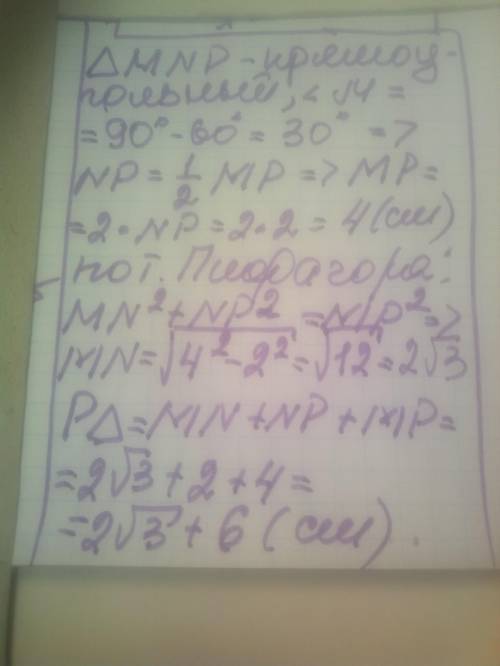 △MNP - прямоу-
гольный, ∠M =
= 90° - 60° = 30° =>
NP = 1/2 MP => MP =
= 2 · NP = 2 · 2 = 4 (см)
по т. Пифагора:
MN² + NP² = MP² =>
MN = √(4² - 2²) = √12 = 2√3
P△ = MN + NP + MP =
= 2√3 + 2 + 4 =
= 2√3 + 6 (см).